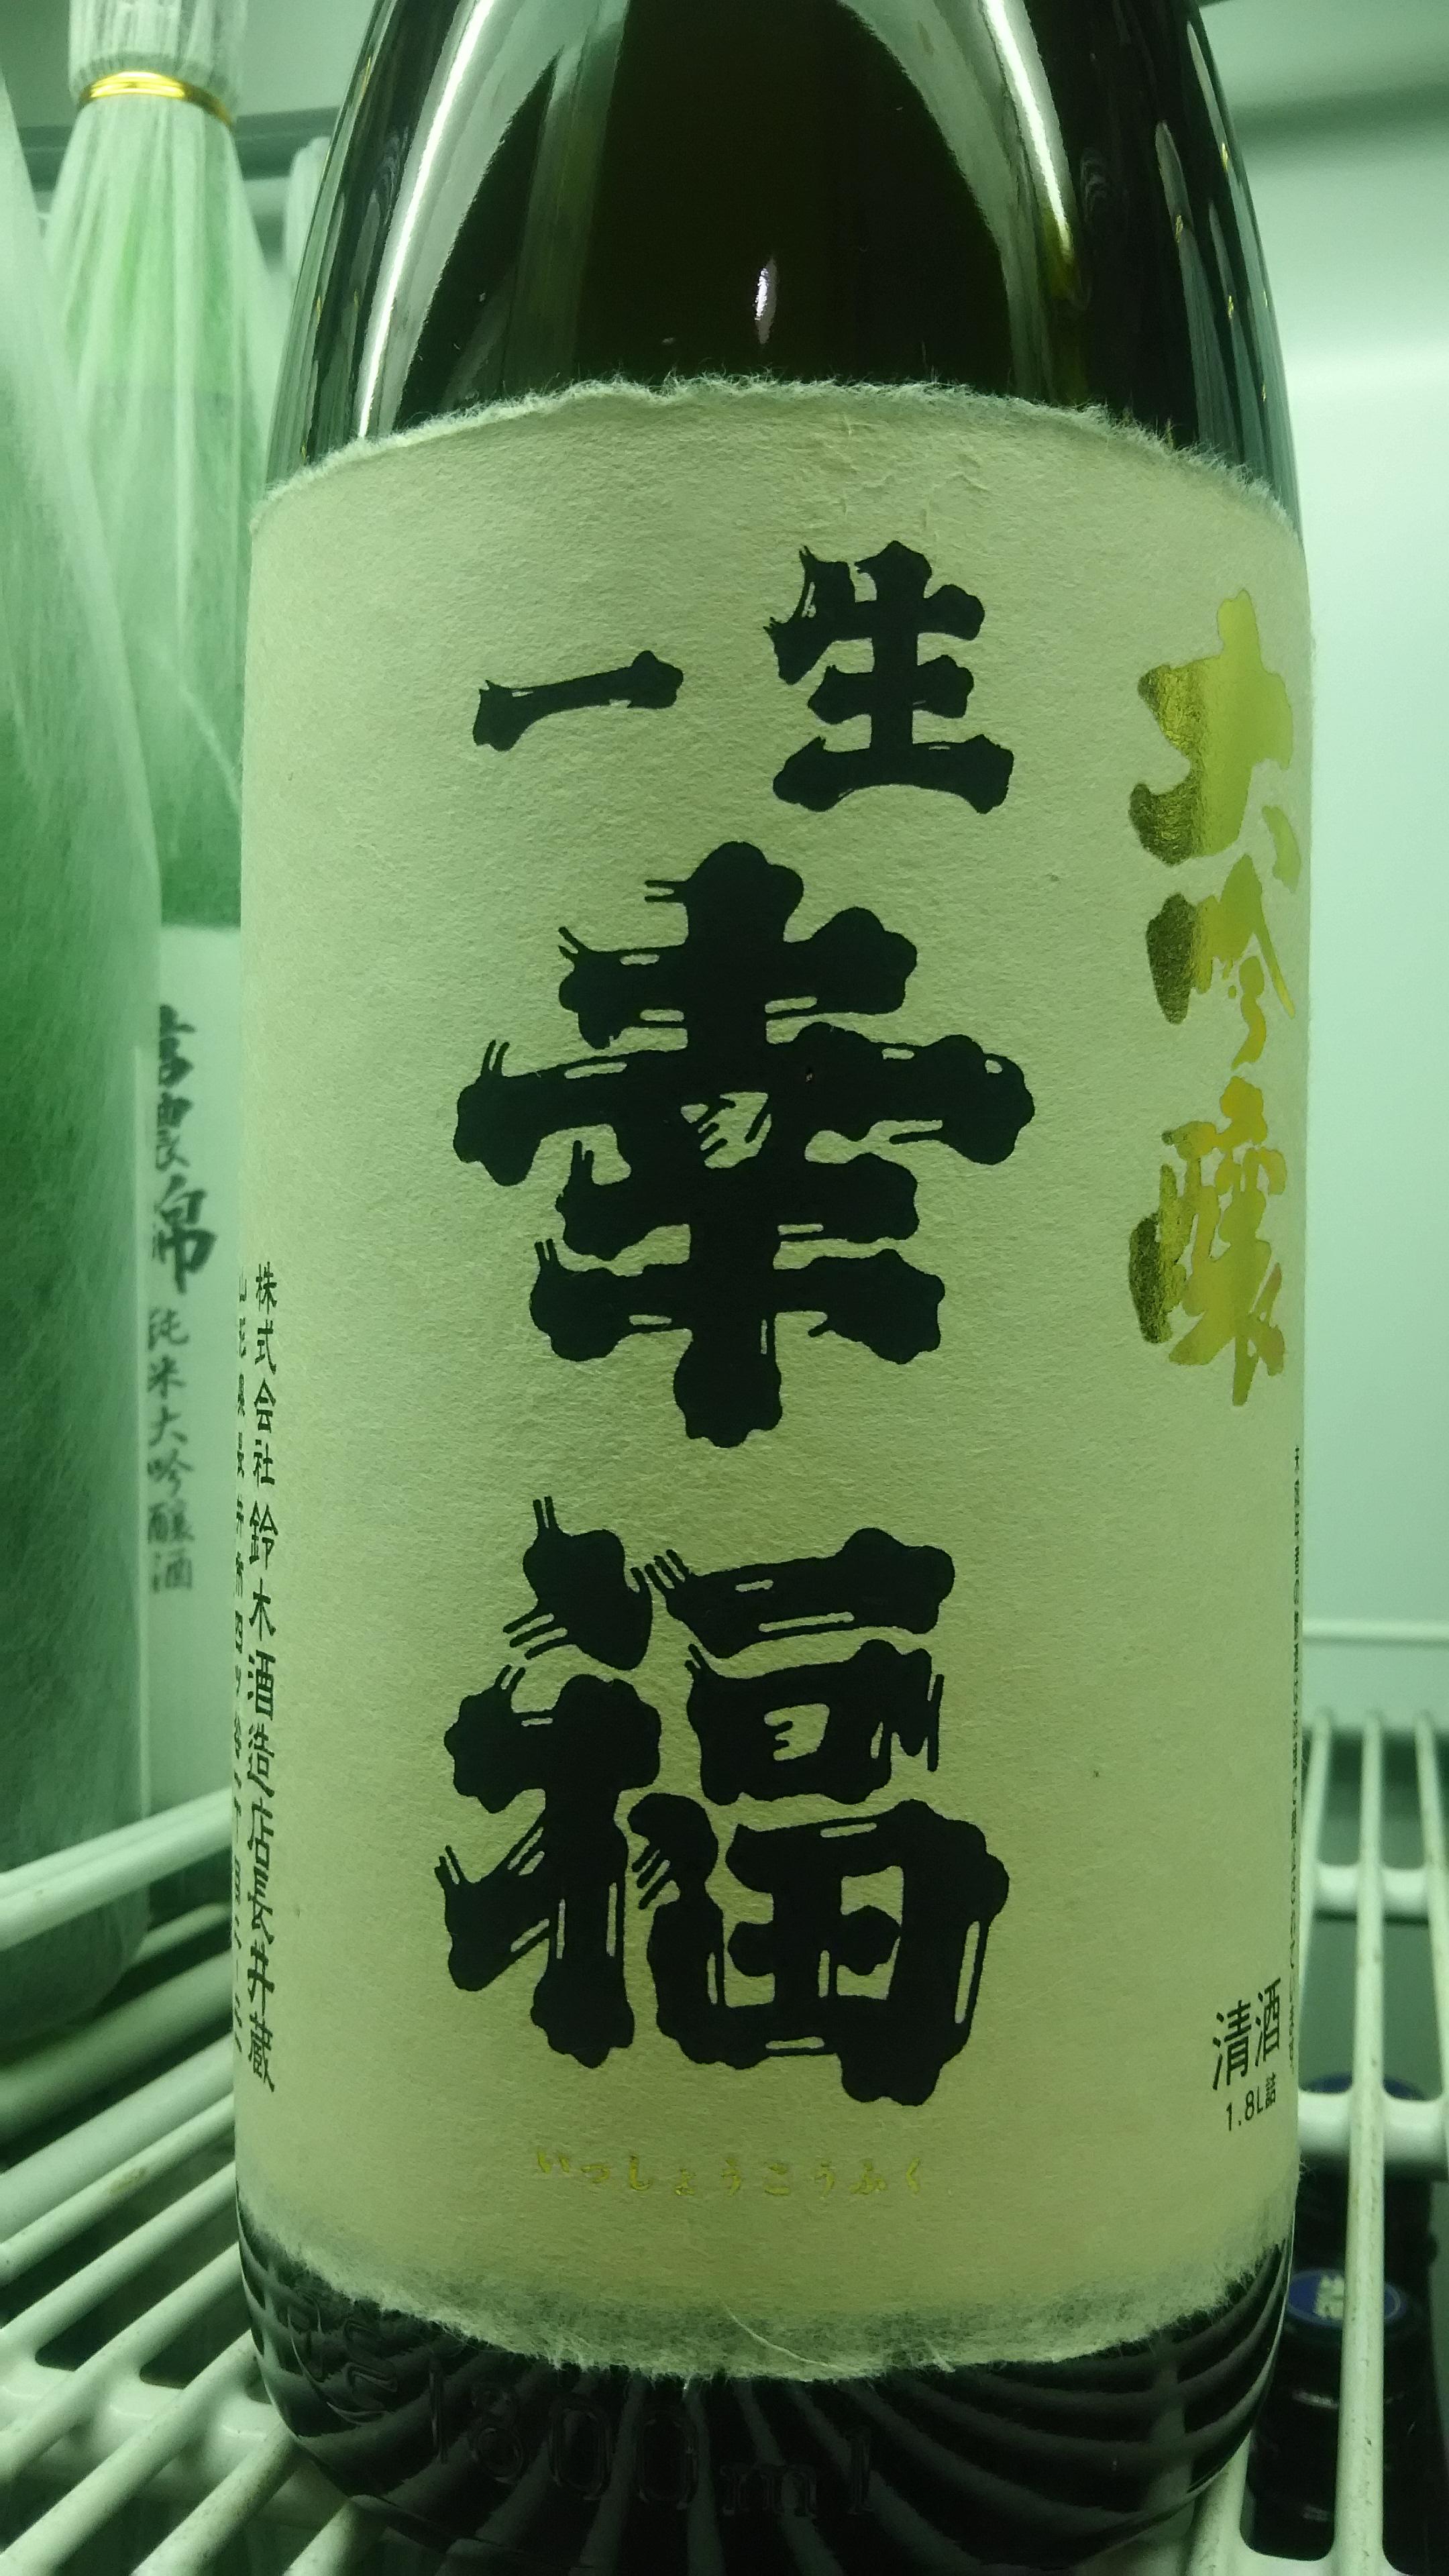 大吟醸
一生
幸福
いっしょうこうふく
清酒
1.8L詰
株式会社鈴木酒造店長井蔵
純米大吟醸酒
1800ml